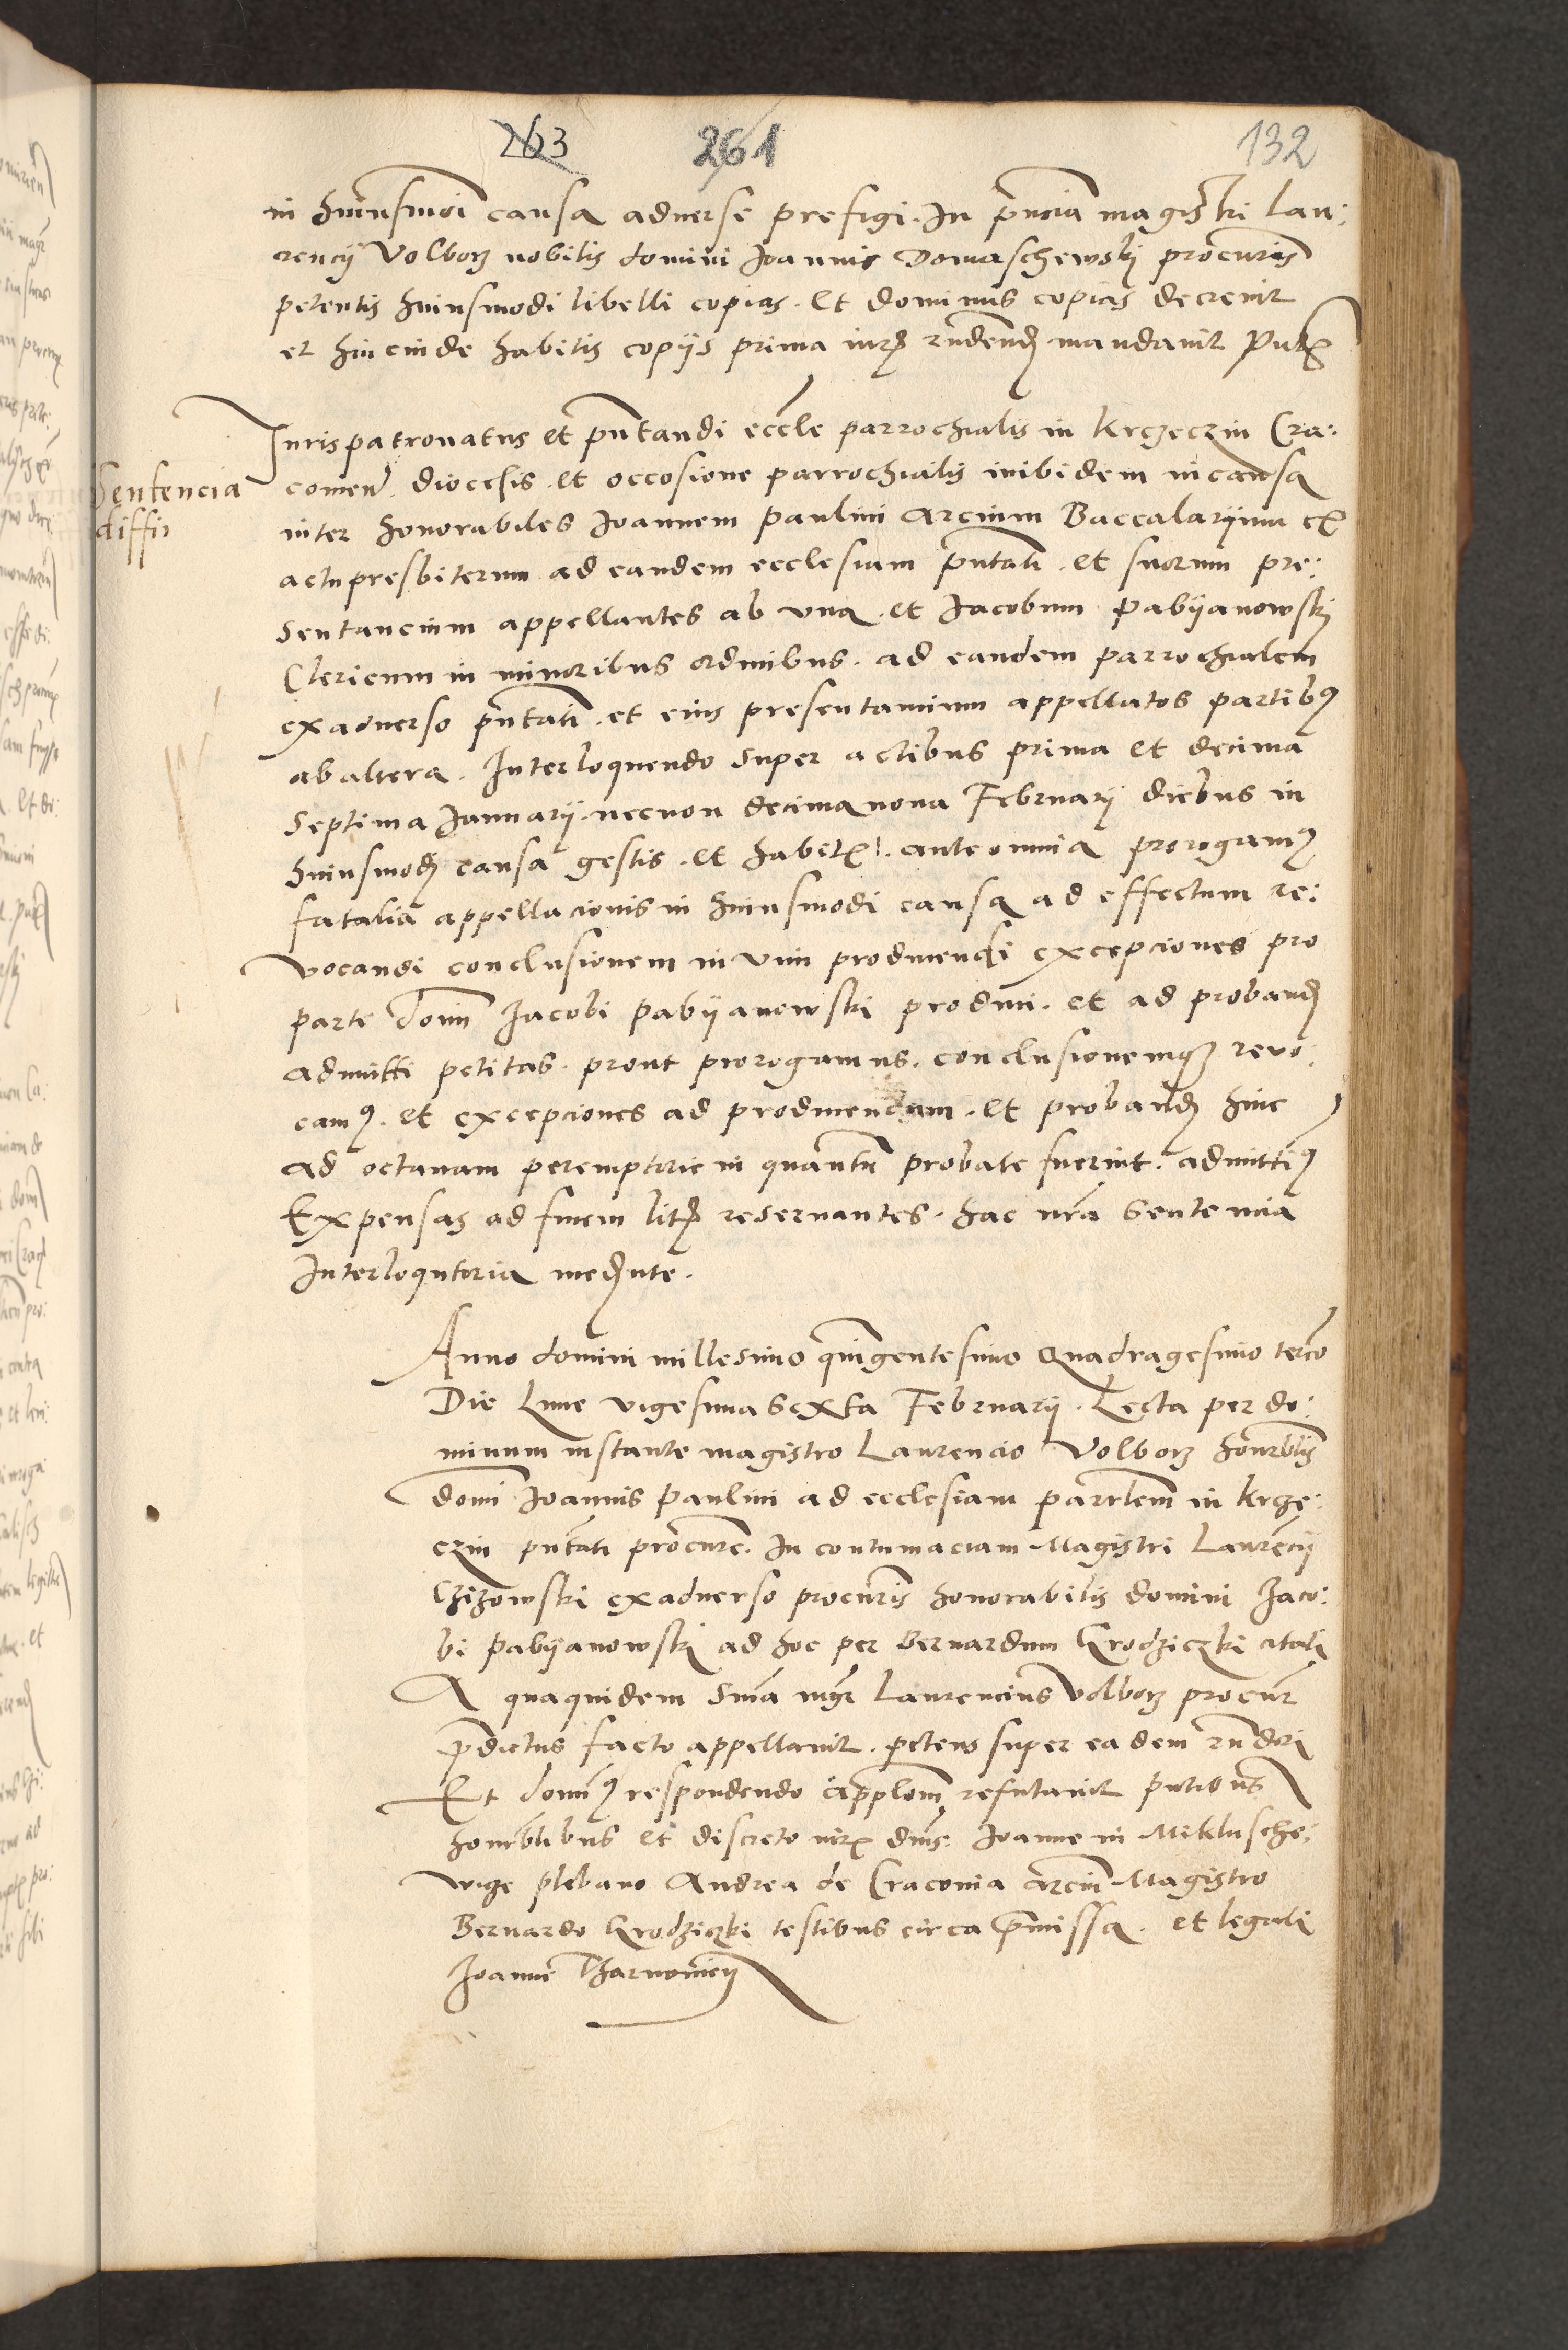 263 261 132
in huiusmodi causa adverse prefigi. In pnciam magistri Lau:
rencij Volborz nobilis domini Joannis Domaschewskj procuris
petentis huiusmodi libelli copias. Et dominus copias decrevit
et hincinde habitis copijs prima iur. rndend. mandavit Pntt.
Jurispatronatus et pntandi eccle parrochialis in Krzeczin Cra:
Sentencia
diffi
covien. diocesis. et occosione parrochialis inibidem in causa
inter honorabiles Joannem Paulini Arcium Baccalarijum et
actu presbiterum ad eandem ecclesiam pntati. et suorum pre:
sentancium appellantes ab vna. et Jacobum Pabijanowskj
Clericum in minoribus ordinibus. ad eandem parrochialem
ex adverso pntati. et eius presentancium appellatos partibus
ab altera. Interloquendo super actibus prima et decima
septima Januarij. necnon decima nona Februarij diebus in
huiusmodj causa gestis. et habit. ante omnia prorogamus
fatalia appellacionis in huiusmodi causa ad effectum re:
vocandi conclusionem in vim producendi excepciones pro
parte domi Jacobi Pabijanowski produci. et ad proband.
admitti petitas. prout prorogamus. conclusionemque revo:
camus. et excepciones ad producendam. et proband. hinc
ad octavam peremptorie in quantum probate fuerint. admittimus
Expensas ad finem litis reservantes. hac nra Sentencia
Interloqutoria mediante.
Anno domini millesimo quingentesimo Quadragesimo tercio
Die Lune vigesima Sexta Februarij. Lecta per do:
minum instante magistro Laurencio Volborz honrblis
domi Joannis Paulini ad ecclesiam parrlem in Krze:
czin pntati procure. In contumaciam Magistri Laurencij
Czizowski ex adverso procuris honorabilis domini Jaco:
bi Pabijanowskj ad hoc per Bernardum Grodziczki citati
A quaquidem Snia mgr Laurencius Volborz procur
predictus facto appellavit. petens super eadem rnderi
Et dominus respondendo applom refutavit pntibus
honrblibus et discreto vir. dnis: Joanne in Miklusche:
wize plebano Andrea de Cracovia arcium Magistro
Bernardo Grodziczki testibus circa premissa. et legali
Joanne Tharnowiecz